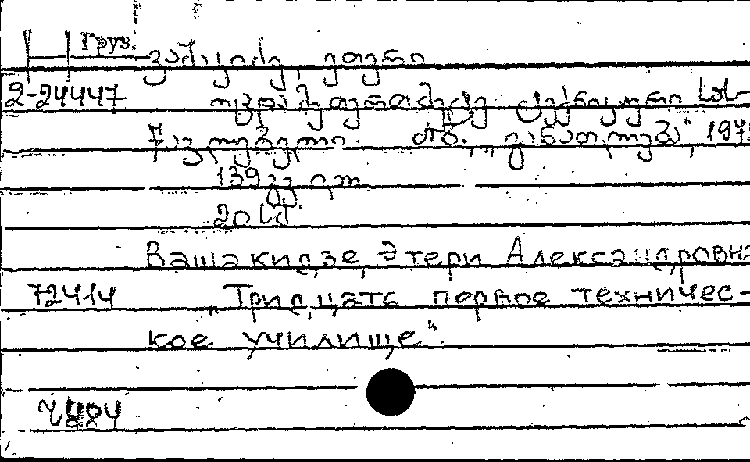 Груз.
ვაშაკიძე, ეთერი
2-24447 ოცდამეთერთმეტე ტექნიკური სას-
წავლებელი. თბ., „განათლება“, 197
139 გვ.
20 სმ
Вашакидзе, Этери Александровна
72414 „Тридцать первое техничес-
кое училище“.